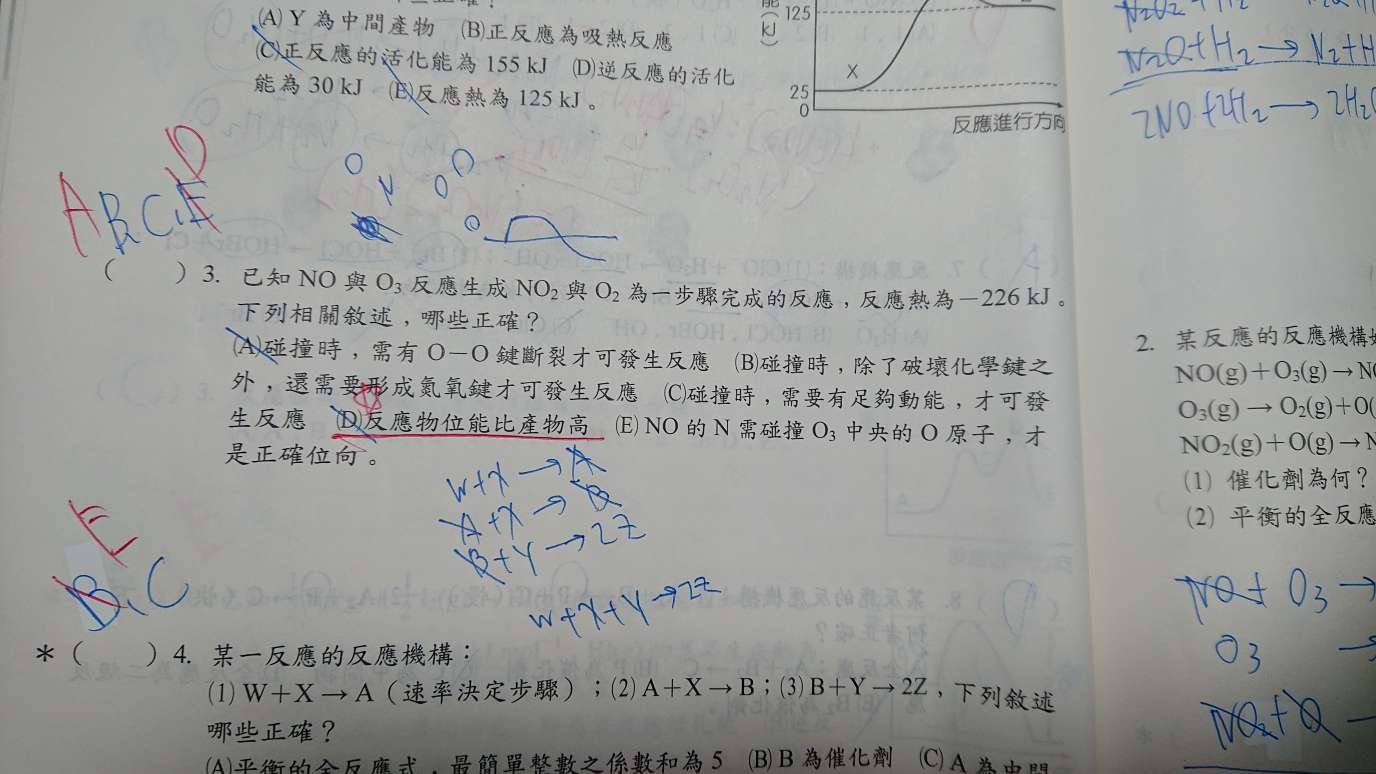 (A) Y 為中間產物 (B)正反應為吸熱反應
(C)正反應的活化能為 155 kJ (D)逆反應的活化
能為 30 kJ (E)反應熱為 125 kJ。
能
(kJ)
125
X
25
0
反應進行方向
N₂O+H₂→N₂+H
2NO+2H₂→2H₂
A B, C, E D
O N O O O
( ) 3. 已知 NO 與 O₃ 反應生成 NO₂ 與 O₂ 為一步驟完成的反應，反應熱為－226 kJ。
下列相關敘述，哪些正確？
(A)碰撞時，需有 O－O 鍵斷裂才可發生反應 (B)碰撞時，除了破壞化學鍵之
外，還需要形成氮氧鍵才可發生反應 (C)碰撞時，需要有足夠動能，才可發
生反應 (D)反應物位能比產物高 (E) NO 的 N 需碰撞 O₃ 中央的 O 原子，才
是正確位向。
W+X→A
A+X→B
B+Y→2Z
W+X+Y→2Z
E
B, C
＊( ) 4. 某一反應的反應機構：
(1) W＋X → A（速率決定步驟）；(2) A＋X → B；(3) B＋Y → 2Z，下列敘述
哪些正確？
(A)平衡的全反應式，最簡單整數之係數和為 5 (B) B 為催化劑 (C) A 為中間
2. 某反應的反應機構
NO(g)＋O₃(g)→N
O₃(g) → O₂(g)+O(
NO₂(g)＋O(g)→N
(1) 催化劑為何？
(2) 平衡的全反應
NO+ O₃→
O₃ →
NO₂+O